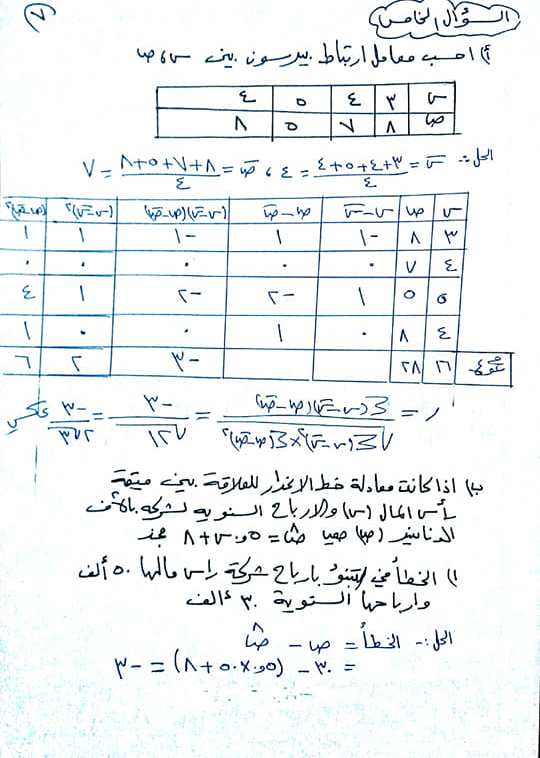 ٧
السؤال الخامس
أ) احسب معامل ارتباط بيرسون بين س، ص
س ٣ ٤ ٥ ٤
ص ٨ ٧ ٥ ٨
الحل :- س̄ = (٣+٤+٥+٤)/٤ = ٤ ، ص̄ = (٨+٧+٥+٨)/٤ = ٧
س ص س-س̄ ص-ص̄ (س-س̄)(ص-ص̄) (س-س̄)² (ص-ص̄)²
٣ ٨ -١ ١ -١ ١ ١
٤ ٧ ٠ ٠ ٠ ٠ ٠
٥ ٥ ١ -٢ -٢ ١ ٤
٤ ٨ ٠ ١ ٠ ٠ ١
مجموع ١٦ ٢٨ -٣ ٢ ٦
ر = Σ(س-س̄)(ص-ص̄) / √(Σ(س-س̄)² × Σ(ص-ص̄)²) = -٣/√١٢ = -٣/٢√٣ عكسي
ب) اذا كانت معادلة خط الانحدار للعلاقة بين قيمة
رأس المال (س) والارباح السنوية لشركة بالالف
الدنانير (ص) هي ص̂ = ٥,٠س + ٨ جد
١) الخطأ في التنبؤ بارباح شركة راس مالها ٥٠ ألف
وارباحها السنوية ٣٠ ألف
الحل :- الخطأ = ص - ص̂
= ٣٠ - (٥,٠×٥٠ + ٨) = -٣